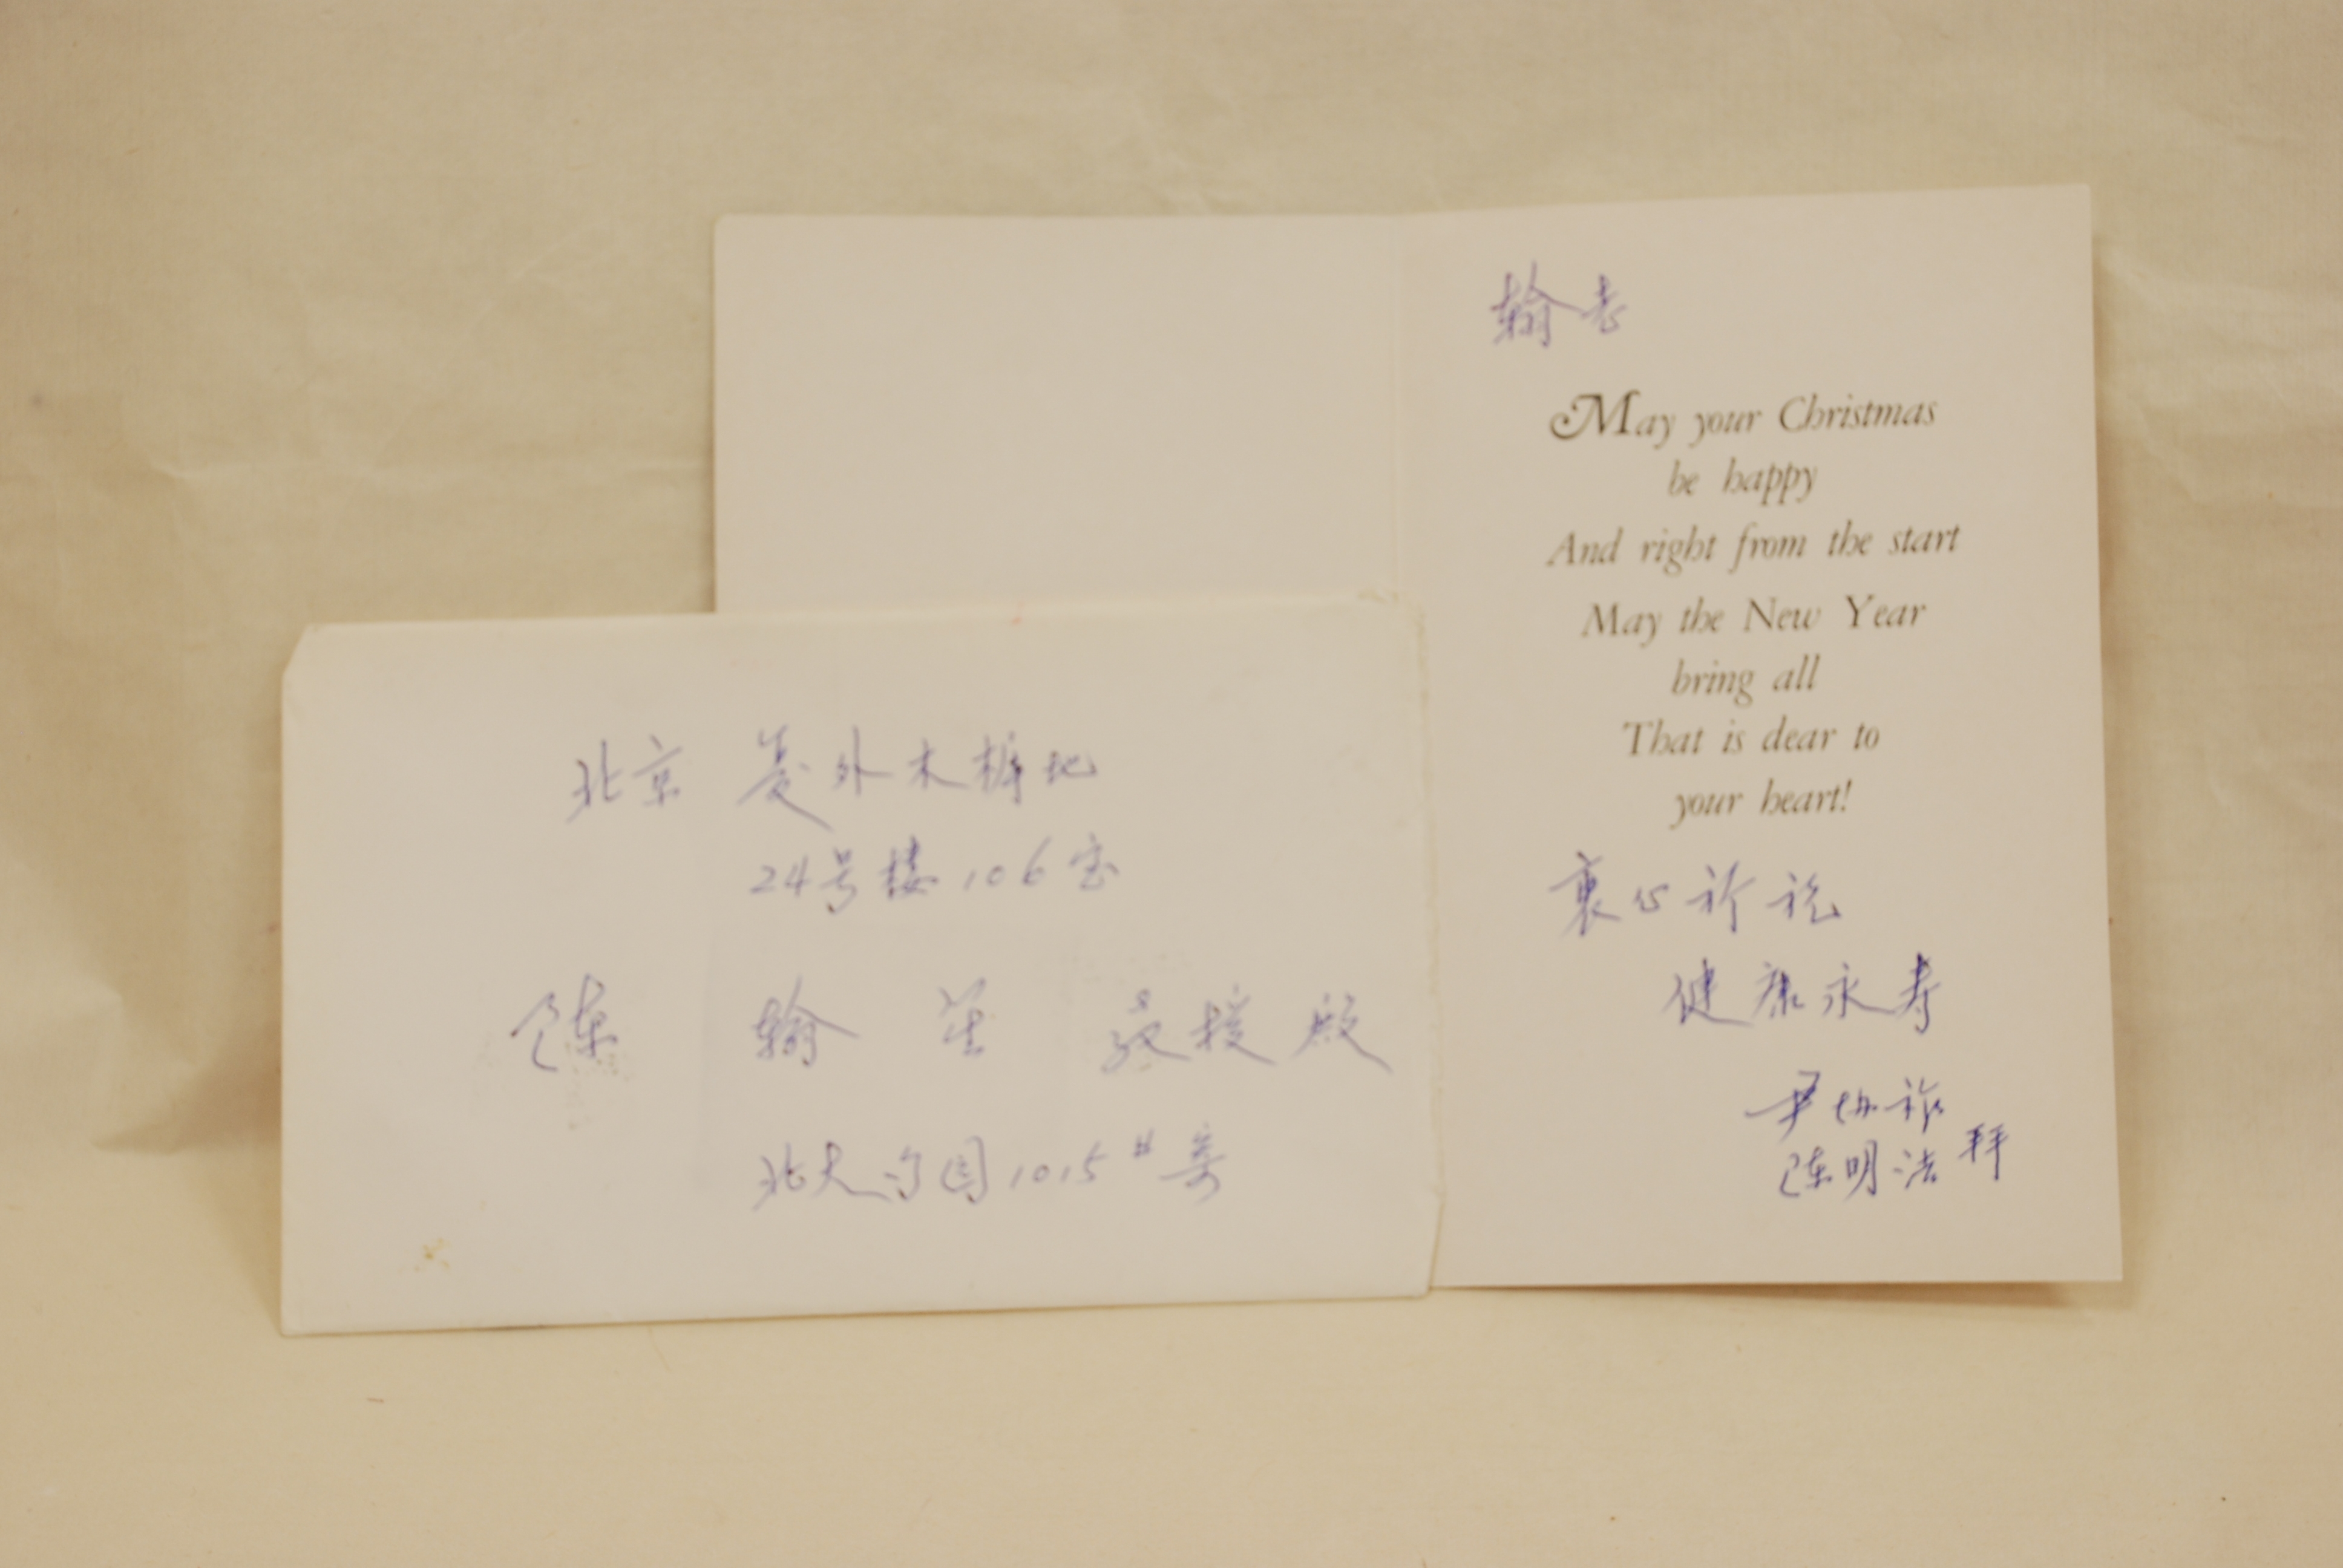 北京 复外木樨地
24号楼106室
陈 翰 笙 教授 殿
北大勺园1015#寄
翰老
May your Christmas
be happy
And right from the start
May the New Year
bring all
That is dear to
your heart!
衷心祈祝
健康永寿
尹协祚
陈明浩 拜